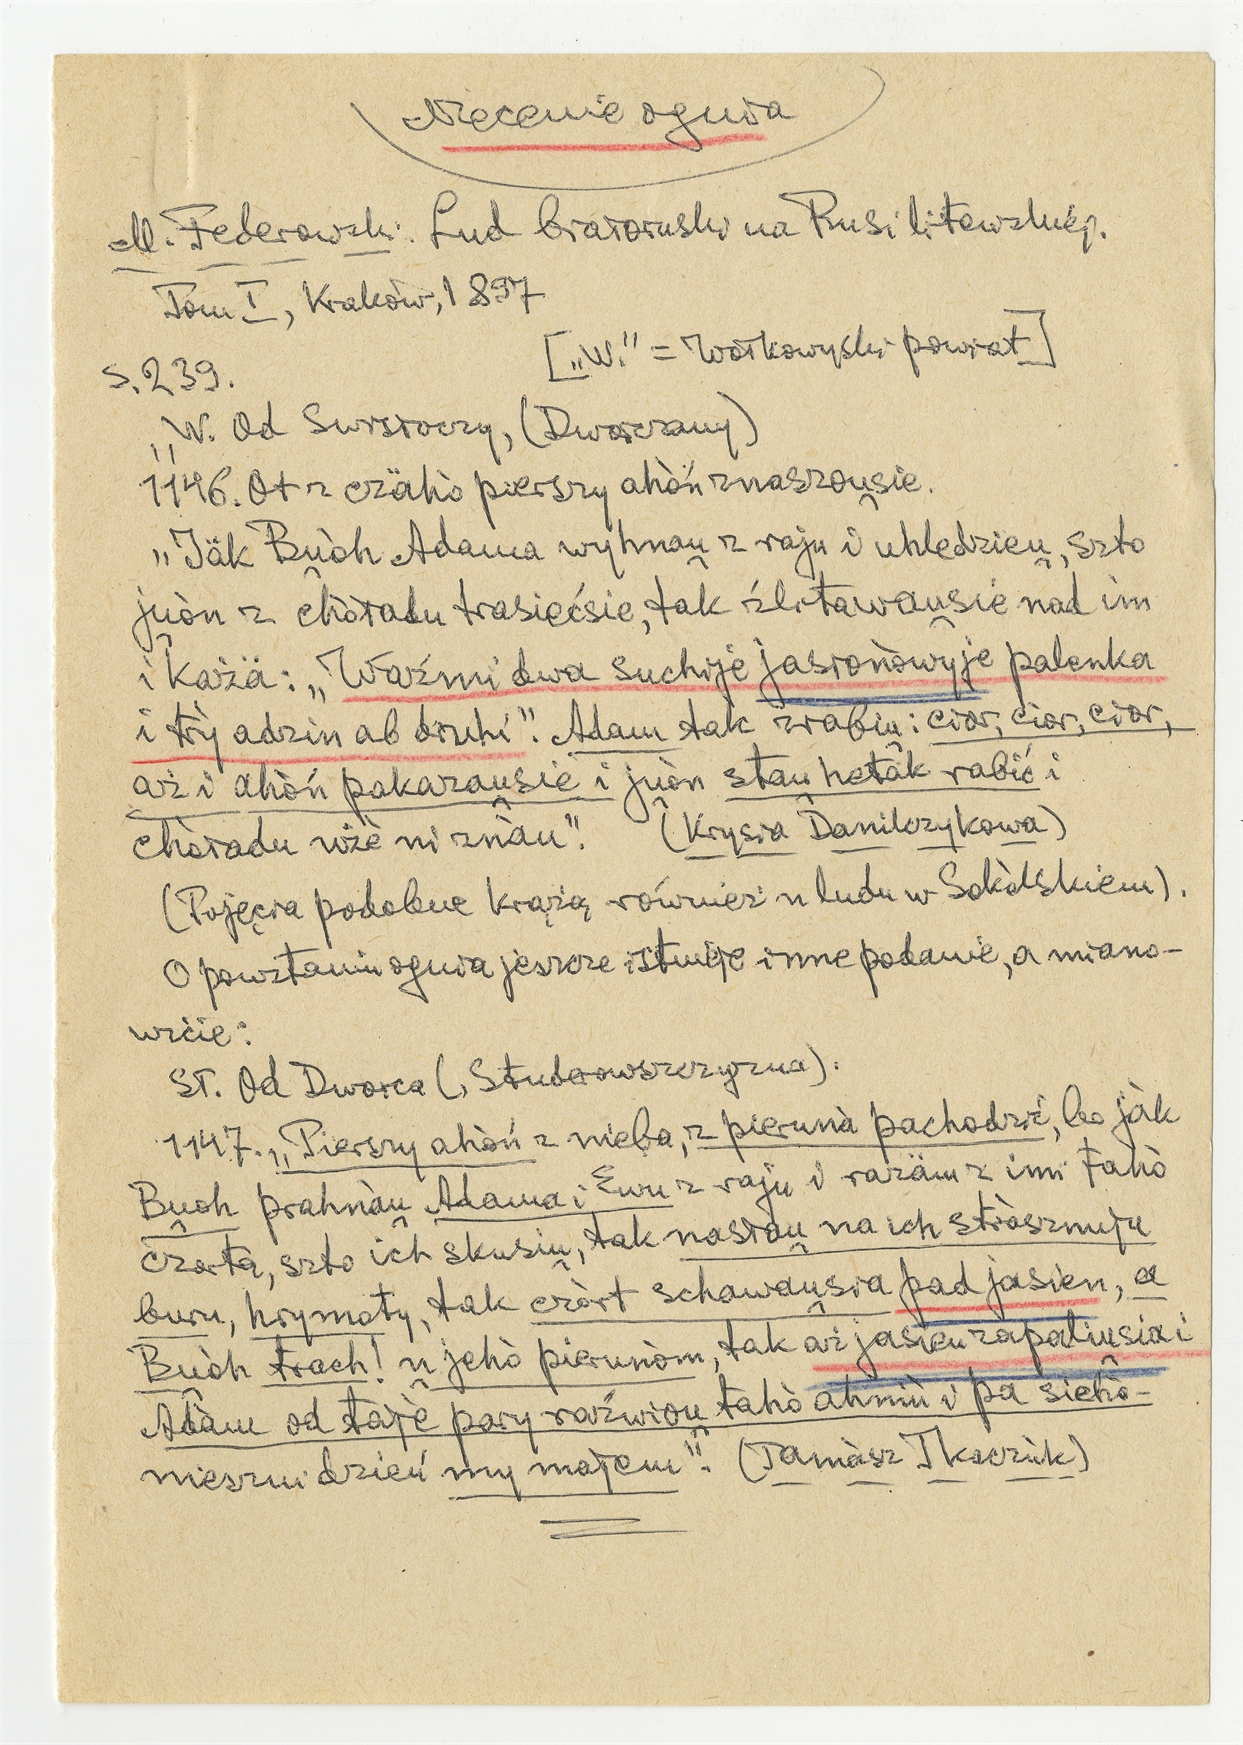 Niecenie ognia
M. Federowski. Lud białoruski na Rusi litewskiéj.
Tom I, Kraków, 1897
[„W." = Wołkowyski powiat]
s. 239.
„W. Od Swisłoczy, (Dworczany)
1146. Ot z czähò pierszy ahòń znaszoŭsie.
„Jäk Buòh Adama wyhnaŭ z raju i uhledzieŭ, szto
juòn z chòładu trasiećsie, tak źlitawaŭsie nad im
i każä: „Waźmi dwa suchije jasionòwyje palenka
i try adzin ab druhi". Adam tak zrabiŭ: cior, cior, cior,
aż i ahòń pakazaŭsie i juòn staŭ heták rabić i
chòładu użè ni znàu". (Krysia Danilczykowa)
(Pojęcia podobne krążą również u ludu w Sokòlskiem).
O powstaniu ognia jeszcze istnieje inne podanie, a miano-
wicie:
Sł. Od Dworca (, Studerowszczyzna).
1147. „Pierszy ahòń z nieba, z pierunà pachodzić, bo jàk
Buoh prahnàŭ Adama i Ewu z raju i razäm z imi tahò
czorta, szto ich skusiŭ, tak nasłaŭ na ich stràsznuju
buru, hrymoty, tak czòrt schawaŭsia pad jasien, a
Buòh trach! u jehò pierunòm, tak aż jasien zapaliŭsia i
Adàm od tajè pary raźwioŭ tahò ahniù i pa siehò-
nieszni dzień my majem". (Tamàsz Tkaczùk)